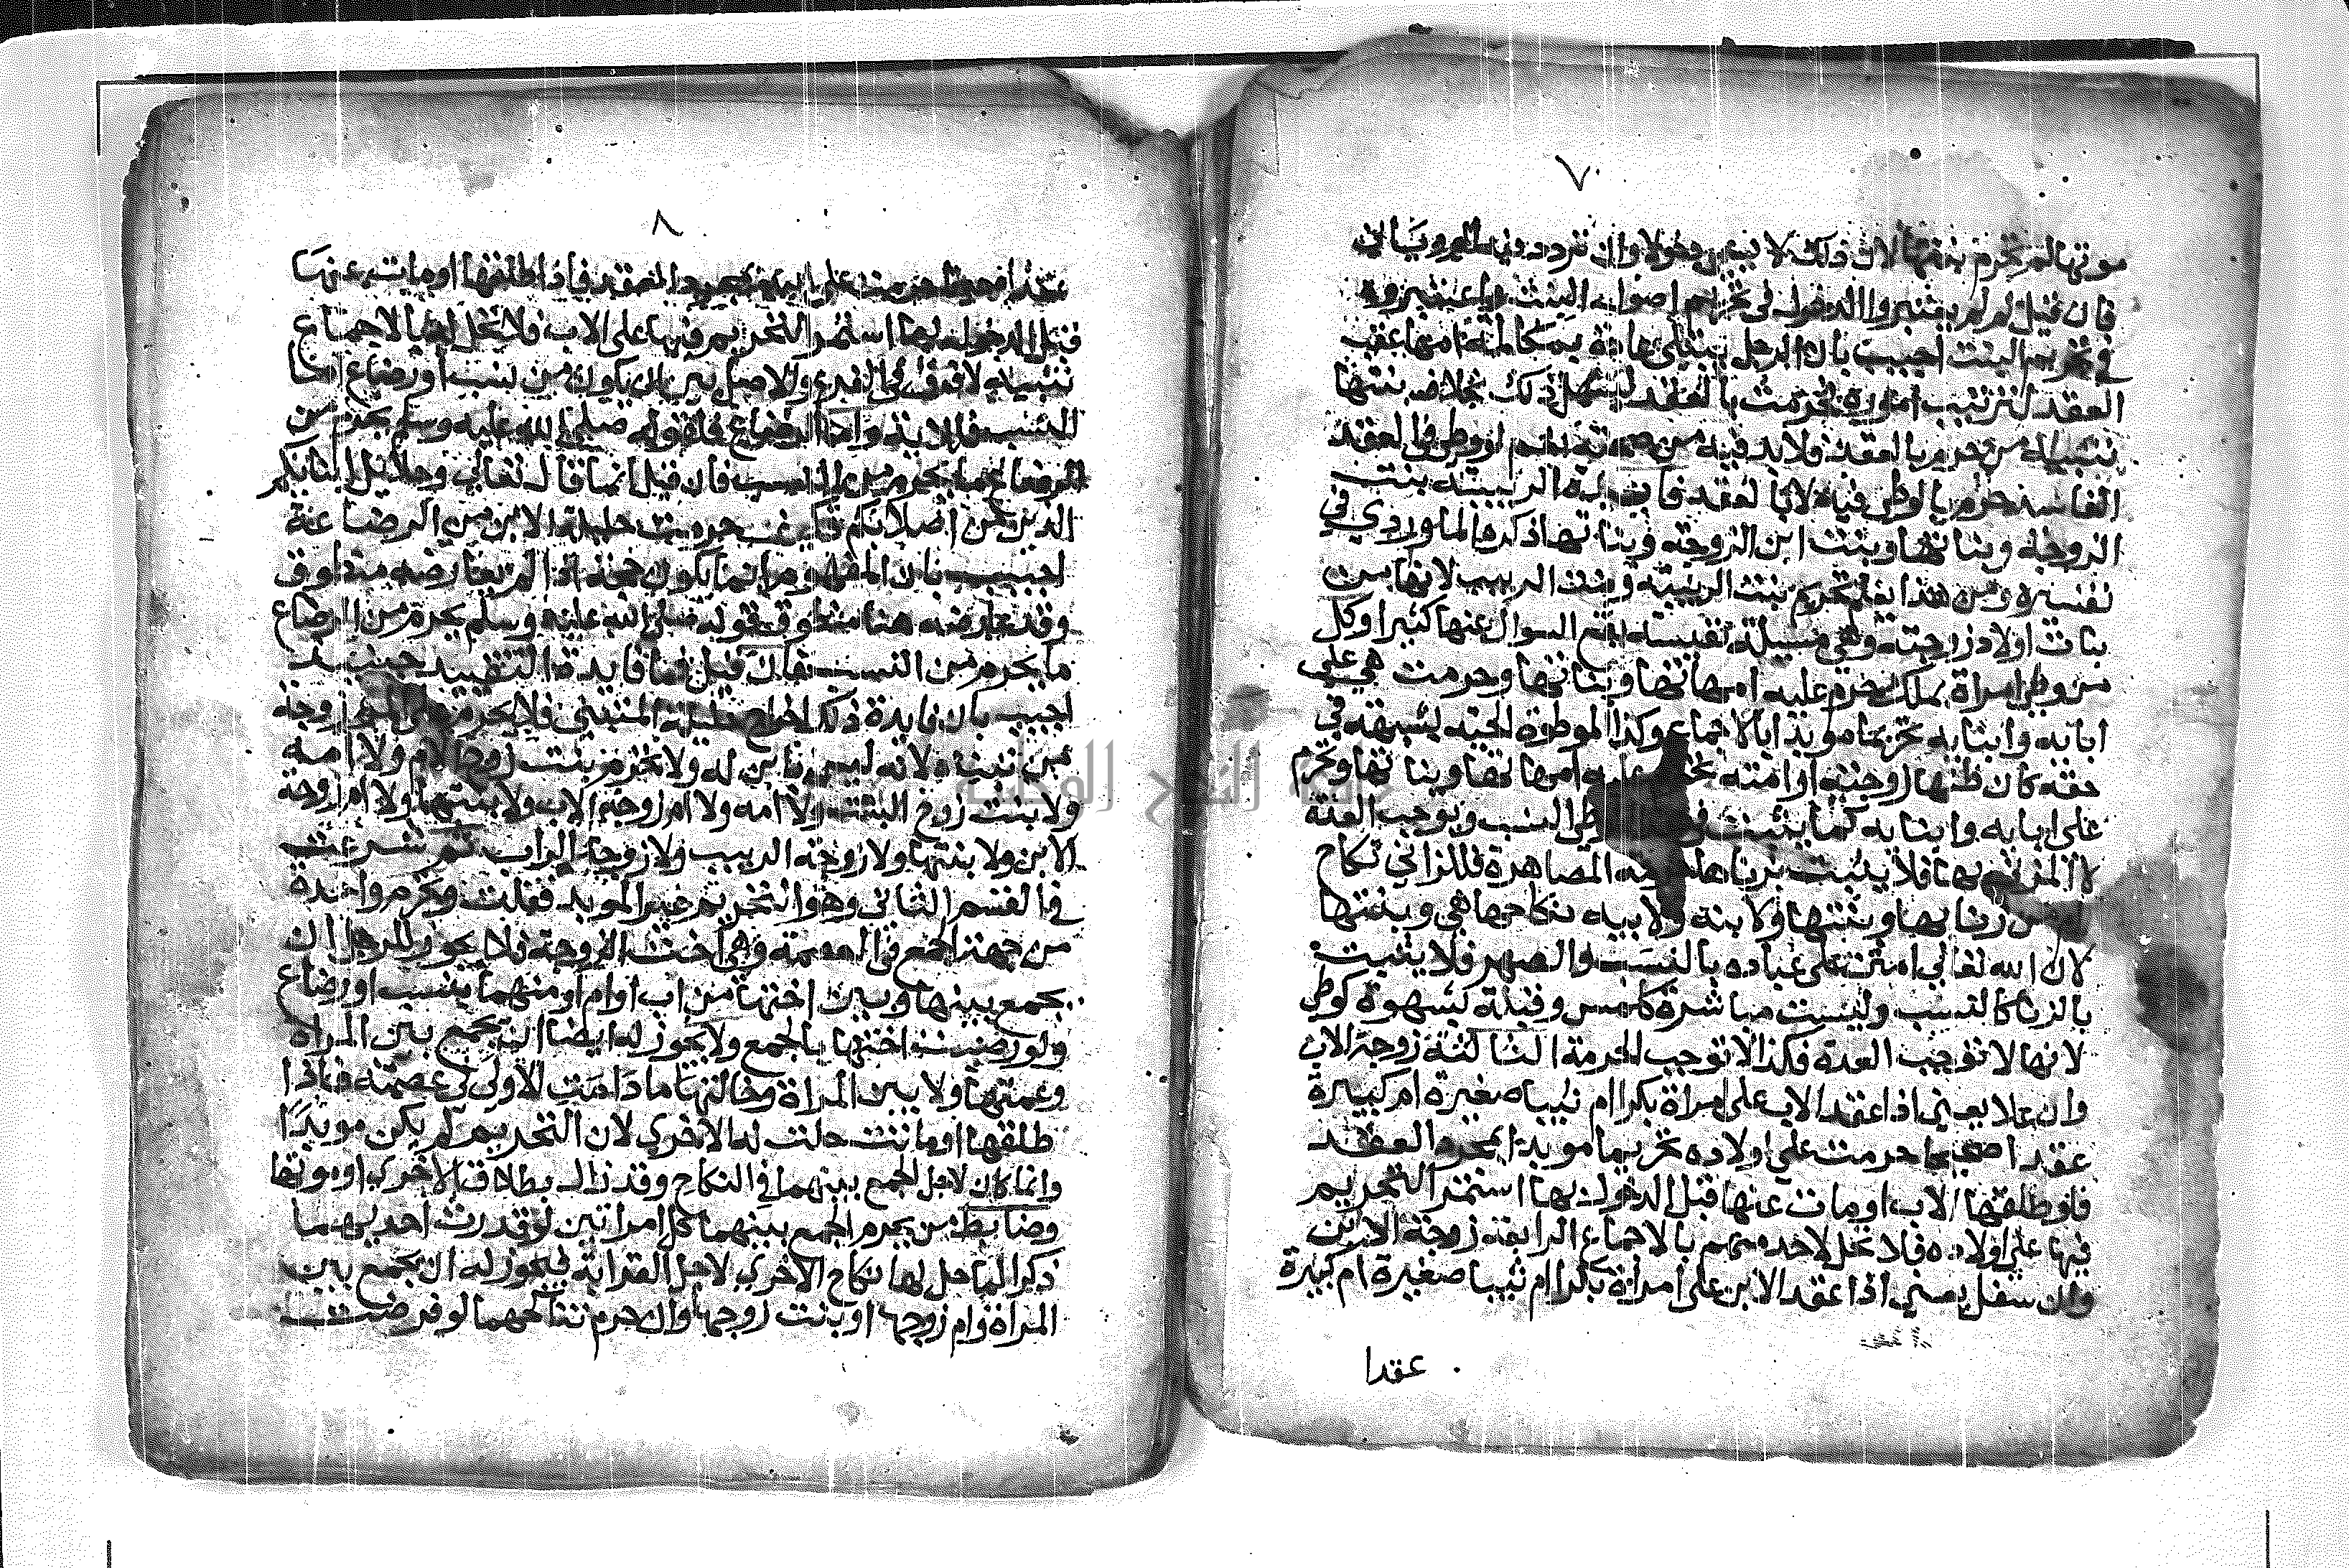 ٧
موتها لم تحرم بنتها لان ذلك لا يسمى دخولا وان تردد فيه الروياني
فان قيل لم لم يعتبروا الدخول في تحريم اصول البنت واعتبروه
في تحريم البنت اجيب بان الرجل يبتلى عادة بمكالمة امها عقب
العقد لترتيب اموره فحرمت بالعقد ليسهل ذلك بخلاف بنتها
تنبيه من حرم بالعقد فلا بد فيه من صحته نعم لو وطئ في العقد
الفاسد حرم بالوطئ فيه لا بالعقد فائدة الربيبة بنت
الزوجة وبناتها وبنت ابن الزوجة وبناتها ذكره الماوردي في
تفسيره ومن هذا يعلم تحريم بنت الربيبة وبنت الربيب لانها من
بنات اولاد زوجته وهي مسيلة نفيسة يقع السوال عنها كثيرا وكل
من وطئ امراة بملك حرم عليه امهاتها وبناتها وحرمت هي على
ابائه وابنايه تحريما موبدا بالاجماع وكذا الموطوة الحية بشبهة في
حقه كان ظنها زوجته او امته عليه امهاتها وبناتها وتحرم
على ابايه وابنايه كما يثبت في وطئ النسب ويوجب العدة
لا المزني بها فلا يثبت بزناها المصاهرة فللزاني نكاح
من زنا بها وبنتها ولابنه ولابيه نكاحها هي وبنتها
لان الله تعالى امتن على عباده بالنسب والصهر فلا يثبت
بالزنا كالنسب وليست مباشرة كلمس وقبلة بشهوة كوطئ
لانها لا توجب العدة فكذا لا توجب الحرمة الثالثة زوجة الاب
وان علا يعني اذا عقد الاب على امراة بكرا ام ثيبا صغيرة ام كبيرة
عقدا صحيحا حرمت على اولاده تحريما موبدا بمجرد العقد
فلو طلقها الاب او مات عنها قبل الدخول بها استمر التحريم
فيها على اولاده فلا تحل لاحد منهم بالاجماع الرابعة زوجة الابن
وان سفل يعني اذا عقد الابن على امراة بكرا ام ثيبا صغيرة ام كبيرة
عقدا
٨
عقدا صحيحا حرمت على ابيه بمجرد العقد فاذا طلقها او مات عنها
قبل الدخول بها استمر التحريم فيها على الاب فلا تحل له بالاجماع
تنبيه لا فرق في الفرع والاصل بين ان يكون من نسب او رضاع اما
النسب فللاية واما الرضاع فلقوله صلى الله عليه وسلم يحرم من
الرضاع ما يحرم من النسب فان قيل انما قال تعالى وحلائل ابنائكم
الذين من اصلابكم فكيف حرمت حليلة الابن من الرضاعة
اجيب بان المفهوم انما يكون حجة اذا لم يعارضه منطوق
وقد عارضه هنا منطوق قوله صلى الله عليه وسلم يحرم من الرضاع
ما يحرم من النسب فان قيل فما فايدة التقييد حينيذ
اجيب بان فايدة ذلك اخراج حليلة المتبنى فلا يحرم على المرء زوجة
من تبناه لانه ليس بابن له ولا تحرم بنت زوج الام ولا امه
ولا بنت زوج البنت ولا امه ولا ام زوجة الاب ولا بنتها ولا ام زوجة
الابن ولا بنتها ولا زوجة الربيب ولا زوجة الراب ثم شرعت
في القسم الثاني وهو التحريم غير الموبد فقلت وتحرم واحدة
من جهة الجمع في العصمة وهي اخت الزوجة فلا يجوز للرجل ان
يجمع بينها وبين اختها من اب او ام او منهما بنسب او رضاع
ولو رضيت اختها بالجمع ولا يجوز له ايضا ان يجمع بين المراة
وعمتها ولا بين المراة وخالتها ما دامت الاولى في عصمته فاذا
طلقها او ماتت حلت له الاخرى لان التحريم لم يكن موبدا
وانما كان لاجل الجمع بينهما في النكاح وقد زال بطلاق الاخرى او موتها
وضابط من يحرم الجمع بينهما كل امراتين لو قدرت احديهما
ذكرا لما حل لها نكاح الاخرى لاجل القرابة فيجوز له ان يجمع بين
المراة وام زوجها او بنت زوجها وان حرم تناكحهما لو فرضت